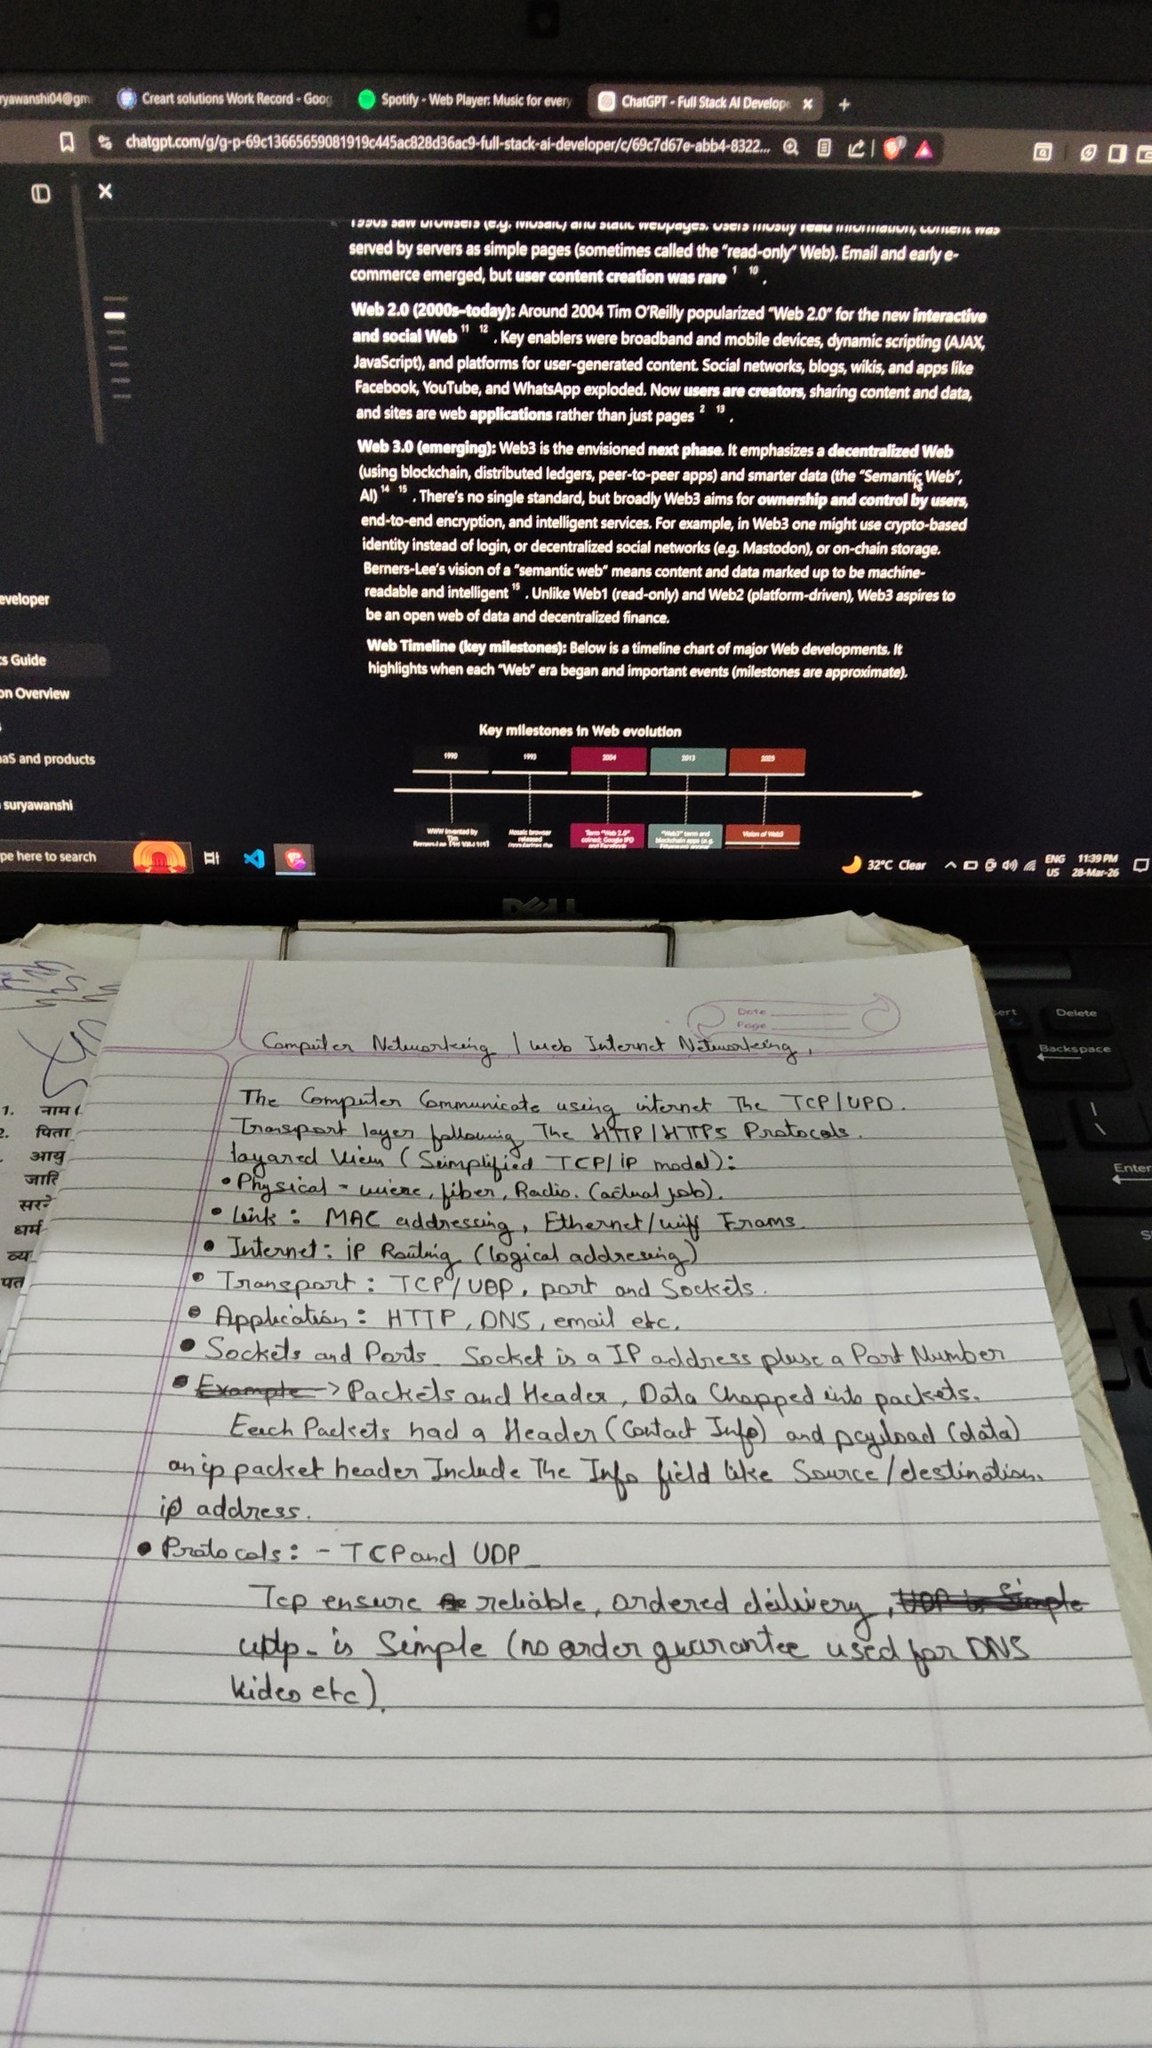 ryawanshi04@gm
Creart solutions Work Record - Goog
Spotify - Web Player: Music for every
ChatGPT - Full Stack AI Develope
chatgpt.com/g/g-p-69c13665659081919c445ac828d36ac9-full-stack-ai-developer/c/69c7d67e-abb4-8322...
1990s saw browsers (e.g. Mosaic) and static webpages. Users mostly read information, content was
served by servers as simple pages (sometimes called the “read-only” Web). Email and early e-
commerce emerged, but user content creation was rare 1 10 .
Web 2.0 (2000s–today): Around 2004 Tim O’Reilly popularized “Web 2.0” for the new interactive
and social Web 11 12 . Key enablers were broadband and mobile devices, dynamic scripting (AJAX,
JavaScript), and platforms for user-generated content. Social networks, blogs, wikis, and apps like
Facebook, YouTube, and WhatsApp exploded. Now users are creators, sharing content and data,
and sites are web applications rather than just pages 2 13 .
Web 3.0 (emerging): Web3 is the envisioned next phase. It emphasizes a decentralized Web
(using blockchain, distributed ledgers, peer-to-peer apps) and smarter data (the “Semantic Web”,
AI) 14 15 . There’s no single standard, but broadly Web3 aims for ownership and control by users,
end-to-end encryption, and intelligent services. For example, in Web3 one might use crypto-based
identity instead of login, or decentralized social networks (e.g. Mastodon), or on-chain storage.
Berners-Lee’s vision of a “semantic web” means content and data marked up to be machine-
readable and intelligent 15 . Unlike Web1 (read-only) and Web2 (platform-driven), Web3 aspires to
be an open web of data and decentralized finance.
Web Timeline (key milestones): Below is a timeline chart of major Web developments. It
highlights when each “Web” era began and important events (milestones are approximate).
eveloper
cs Guide
on Overview
aaS and products
suryawanshi
Key milestones in Web evolution
1990 1993 2004 2013 2025
WWW invented by Tim
Mosaic browser released
Term "Web 2.0" coined; Google IPO and Facebook
"Web3" term and blockchain apps (e.g.
Vision of Web3
pe here to search
32°C Clear
ENG US
11:39 PM
28-Mar-26
DELL
Delete
Backspace
Enter
1. नाम (
2. पिता
आयु
जाति
सरने
धर्म
व्य
पत
Date
Page
Computer Networking / web Internet Networking,
The Computer Communicate using internet The TCP/UPD.
Transport layer following The HTTP/HTTPs Protocols.
layared View (Seimplified TCP/iP model):
• Physical - wiere, fiber, Radio. (actual job).
• Link: MAC addressing, Ethernet/wiff Frams.
• Internet: iP Routing (logical addresing)
• Transport: TCP/UDP, port and Sockets.
• Application: HTTP, DNS, email etc.
• Sockets and Ports - Socket is a IP address pluse a Port Number
• Example -> Packets and Header, Data Chapped into packets.
Eech Packets had a Header (Contact Info) and payload (data)
an ip packet header Include The Info field like Source/destination.
ip address.
• Protocals: - TCP and UDP
Tcp ensure reliable, ordered delivery, UDP is Simple
udp - is Simple (no order guarantee used for DNS
Video etc).